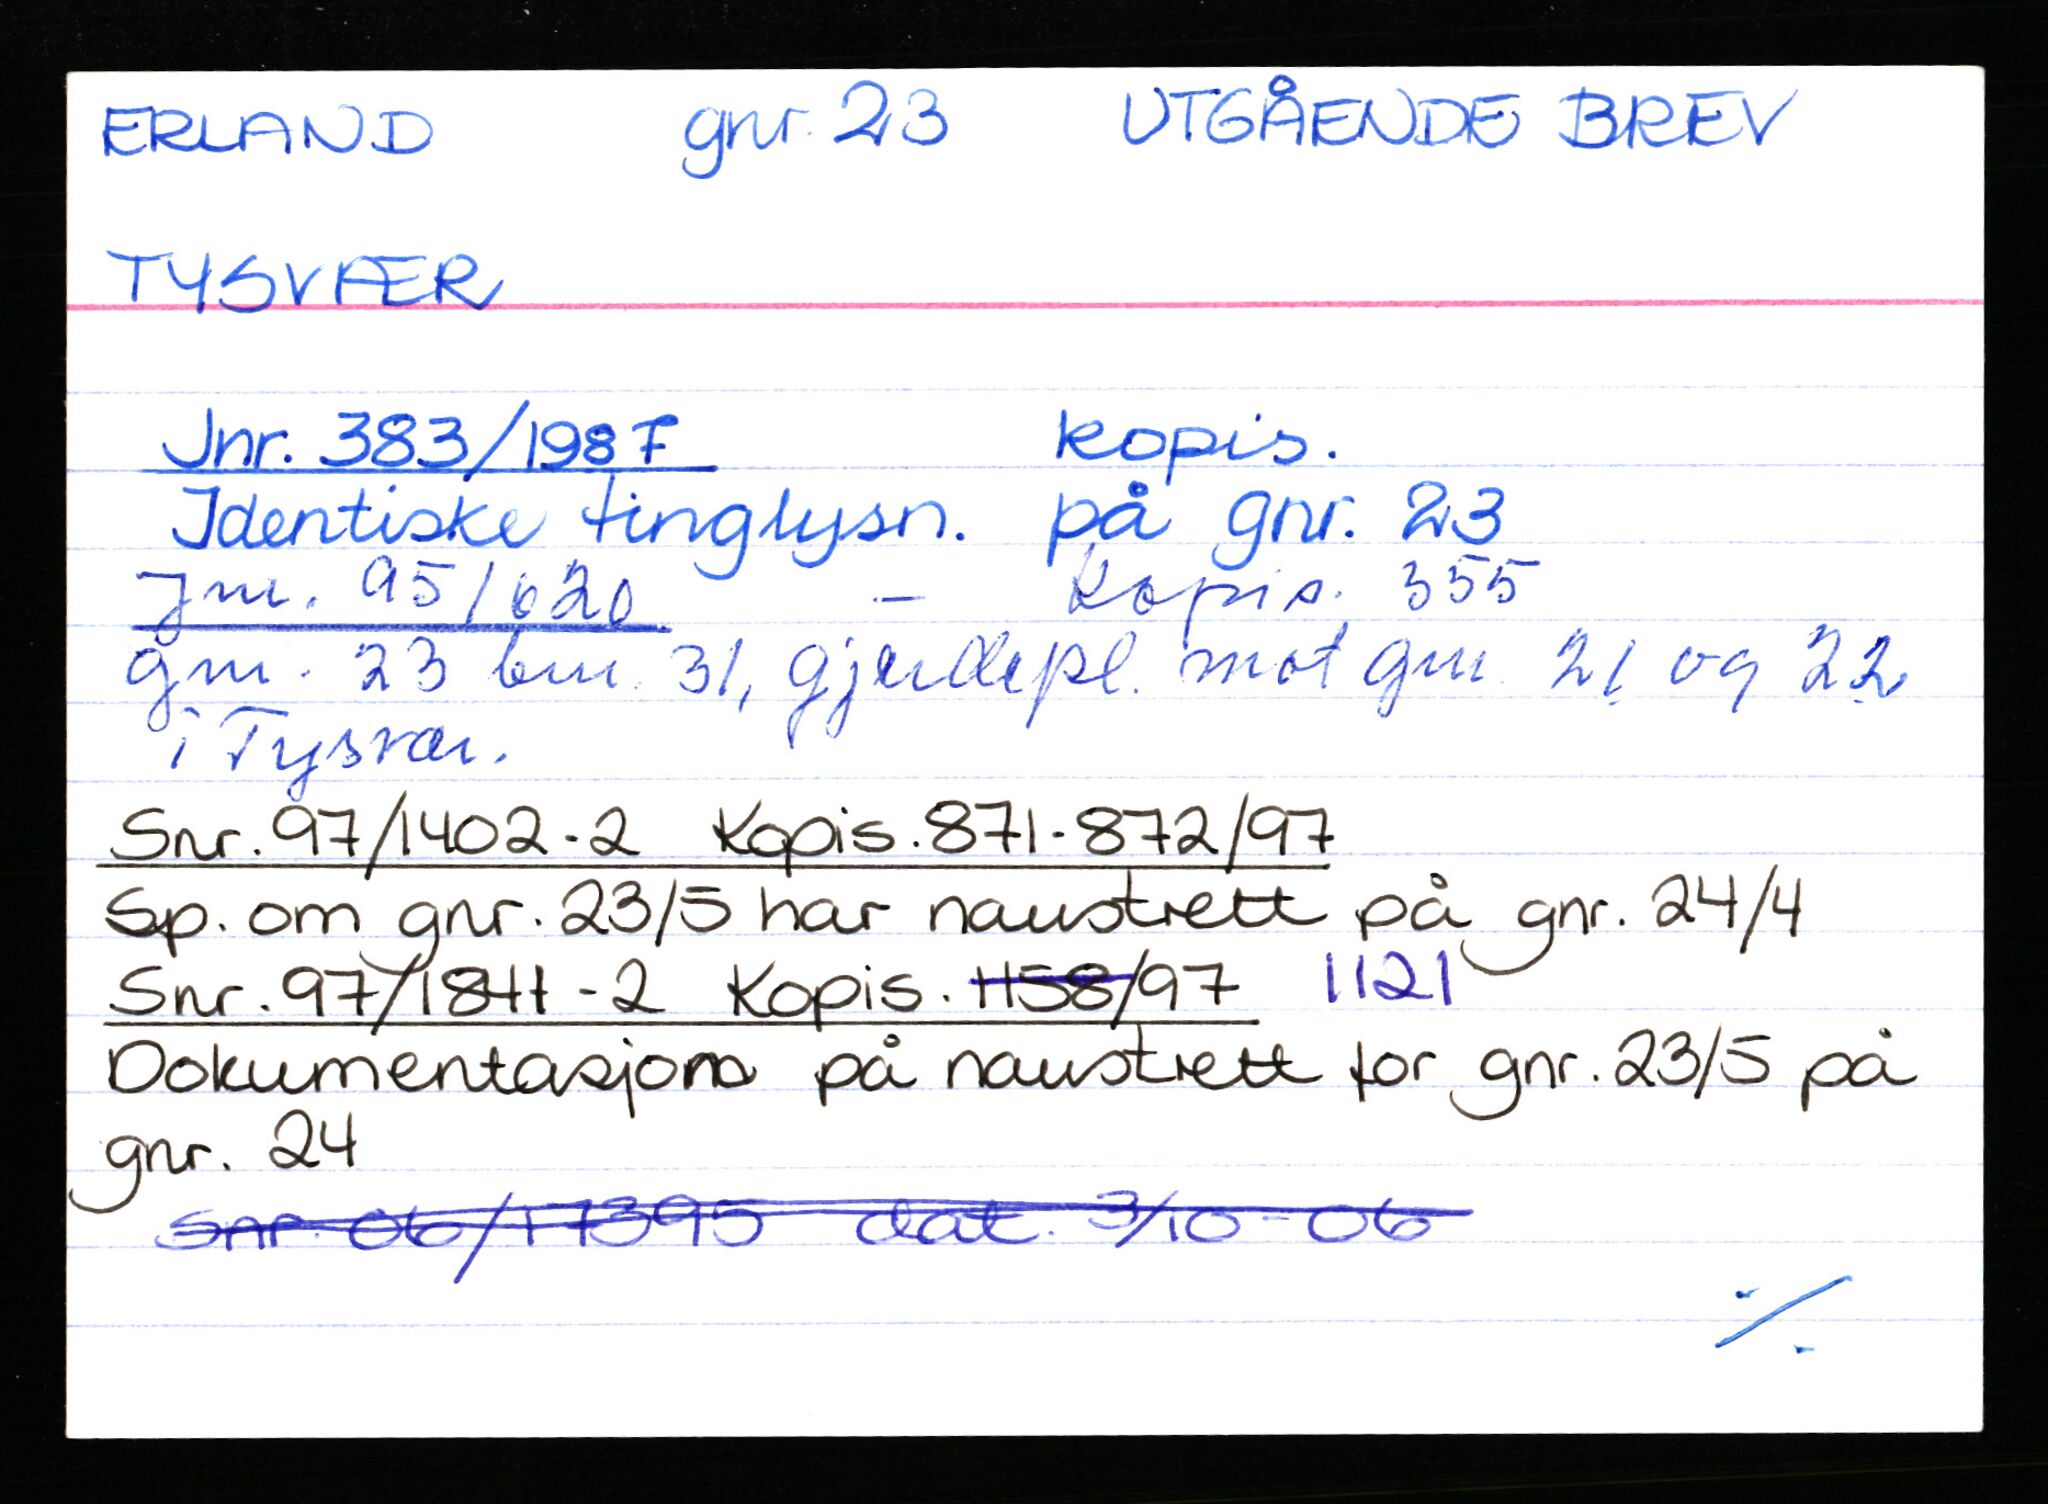 ERLAND gnr. 23 UTGÅENDE BREV
TYSVÆR
Jnr. 383/1987 kopis.
Identiske tinglysn. på gnr. 23
Jnr. 95/620 - Kopis. 355
gnr. 23 bnr. 31, gjerdepl. mot gnr. 21 og 22
i Tysvær.
Snr. 97/1402-2 Kopis. 871-872/97
Sp. om gnr. 23/5 har naustrett på gnr. 24/4
Snr. 97/1841-2 Kopis. 1158/97 1121
Dokumentasjon på naustrett for gnr. 23/5 på
gnr. 24
Snr. 06/17395 dat. 3/10-06
./.